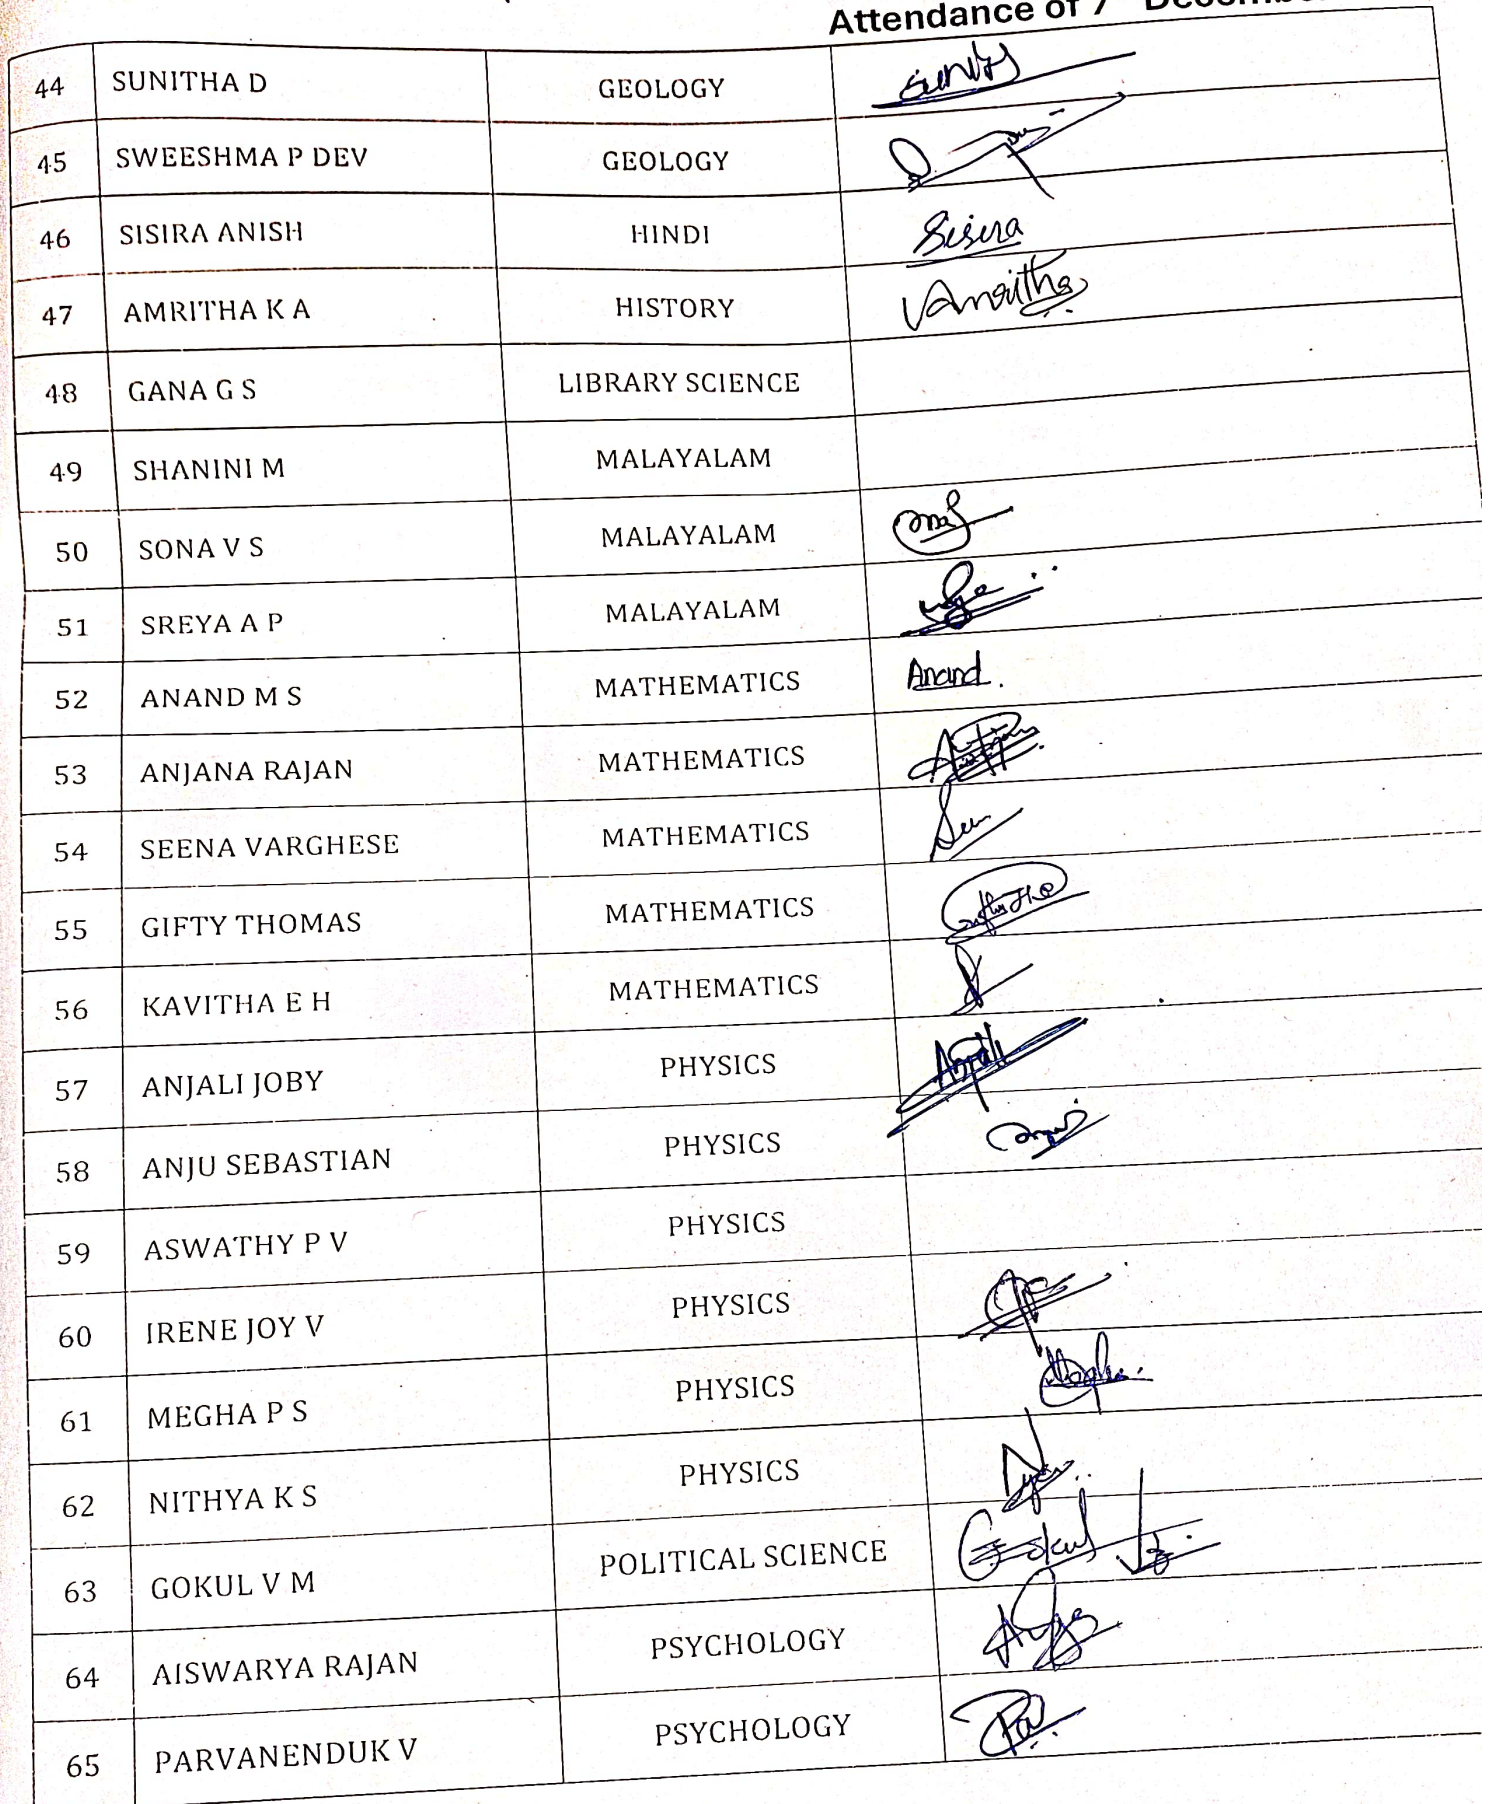 Attendance of 7 December
44 SUNITHA D GEOLOGY
45 SWEESHMA P DEV GEOLOGY
46 SISIRA ANISH HINDI Sisira
47 AMRITHA K A HISTORY Amritha
48 GANA G S LIBRARY SCIENCE
49 SHANINI M MALAYALAM
50 SONA V S MALAYALAM
51 SREYA A P MALAYALAM
52 ANAND M S MATHEMATICS Anand.
53 ANJANA RAJAN MATHEMATICS
54 SEENA VARGHESE MATHEMATICS
55 GIFTY THOMAS MATHEMATICS
56 KAVITHA E H MATHEMATICS
57 ANJALI JOBY PHYSICS Anjali
58 ANJU SEBASTIAN PHYSICS
59 ASWATHY P V PHYSICS
60 IRENE JOY V PHYSICS
61 MEGHA P S PHYSICS
62 NITHYA K S PHYSICS
63 GOKUL V M POLITICAL SCIENCE Gokul
64 AISWARYA RAJAN PSYCHOLOGY
65 PARVANENDUK V PSYCHOLOGY